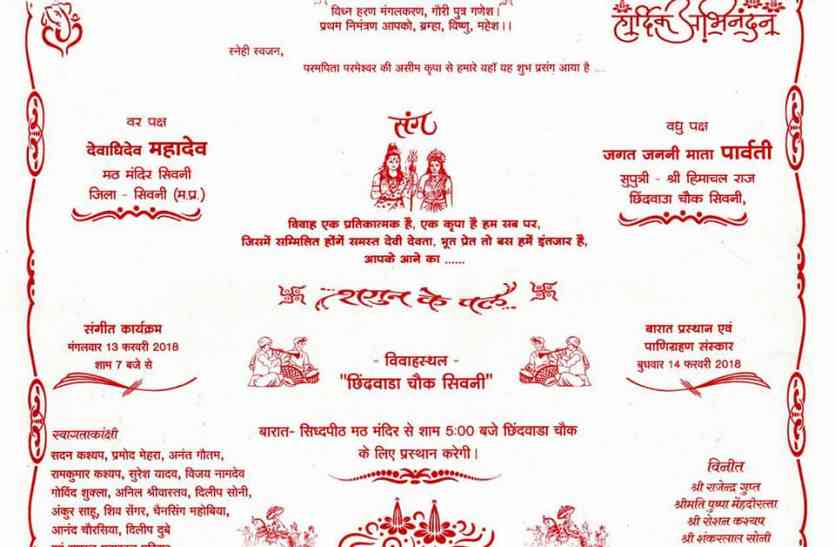 विघ्न हरण मंगलकरण, गौरी पुत्र गणेश।
प्रथम निमंत्रण आपको, ब्रम्हा, विष्णु, महेश।।
हार्दिक अभिनंदन
स्नेही स्वजन,
परमपिता परमेश्वर की असीम कृपा से हमारे यहाँ यह शुभ प्रसंग आया है ...
वर पक्ष
देवाधिदेव महादेव
मठ मंदिर सिवनी
जिला - सिवनी (म.प्र.)
संग
वधु पक्ष
जगत जननी माता पार्वती
सुपुत्री - श्री हिमाचल राज
छिंदवाडा चौक सिवनी,
विवाह एक प्रतिकात्मक है, एक कृपा है हम सब पर,
जिसमें सम्मिलित होंगें समस्त देवी देवता, भूत प्रेत तो बस हमें इंतजार है,
आपके आने का ......
शगुन के पल...
संगीत कार्यक्रम
मंगलवार 13 फरवरी 2018
शाम 7 बजे से
- विवाहस्थल -
"छिंदवाडा चौक सिवनी"
बारात प्रस्थान एवं
पाणिग्रहण संस्कार
बुधवार 14 फरवरी 2018
बारात- सिध्दपीठ मठ मंदिर से शाम 5:00 बजे छिंदवाडा चौक
के लिए प्रस्थान करेगी।
स्वागताकांक्षी
सदन कश्यप, प्रमोद मेहरा, अनंत गौतम,
रामकुमार कश्यप, सुरेश यादव, विजय नामदेव
गोविंद शुक्ला, अनिल श्रीवास्तव, दिलीप सोनी,
अंकुर साहू, शिव सेंगर, चैनसिंग महोबिया,
आनंद चौरसिया, दिलीप दुबे
विनीत
श्री राजेन्द्र गुप्त
श्रीमति पुष्पा मेंहदीरत्ता
श्री रोशन कश्यप
श्री शंकरलाल सोनी